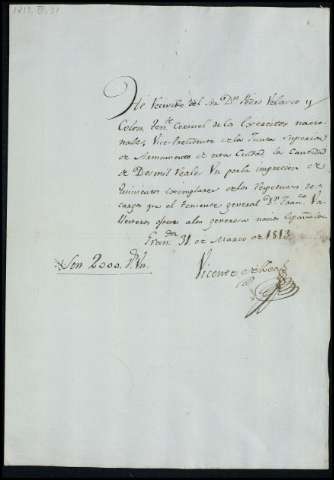 1813, III, 31
He Recivido del Sr. Dn. Pedro Velarco y
Colon Tente. Coronel de los Exercitos nacio-
nales, Vice-Presidente de la Junta Superior
de Armamento de esta Ciudad la Cantidad
de Dos mil Reales Vn. por la impresion de
exemplares de los
cargos que el teniente general Dn. Franco. Ba-
llesteros ofrece a la generosa nacion Española
Grada. 31 de Marzo de 1813
Son 2000. Rs. Vn.
Vicente